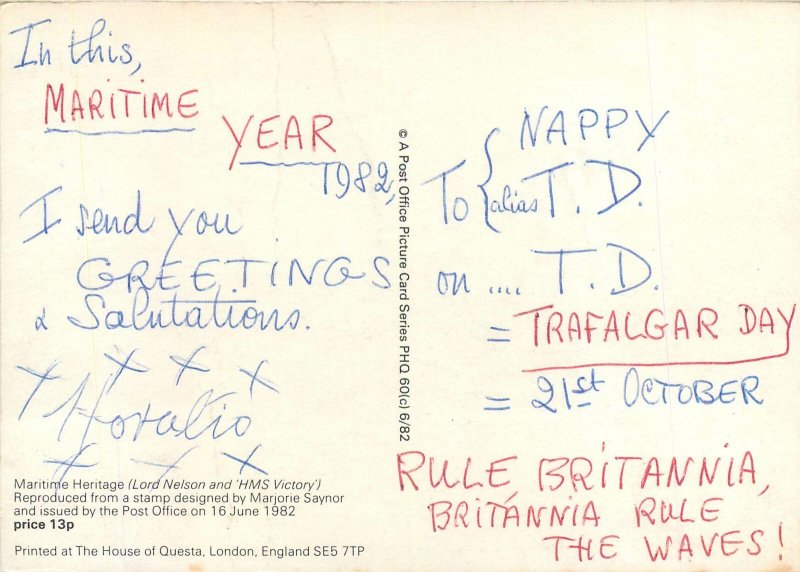 In this,
MARITIME
YEAR
1982,
I send you
GREETINGS
& Salutations.
Horatio
Maritime Heritage (Lord Nelson and 'HMS Victory')
Reproduced from a stamp designed by Marjorie Saynor
and issued by the Post Office on 16 June 1982
price 13p
Printed at The House of Questa, London, England SE5 7TP
© A Post Office Picture Card Series PHQ 60(c) 6/82
NAPPY
To { alias T.D.
on .... T.D.
= TRAFALGAR DAY
= 21st OCTOBER
RULE BRITANNIA,
BRITANNIA RULE
THE WAVES!